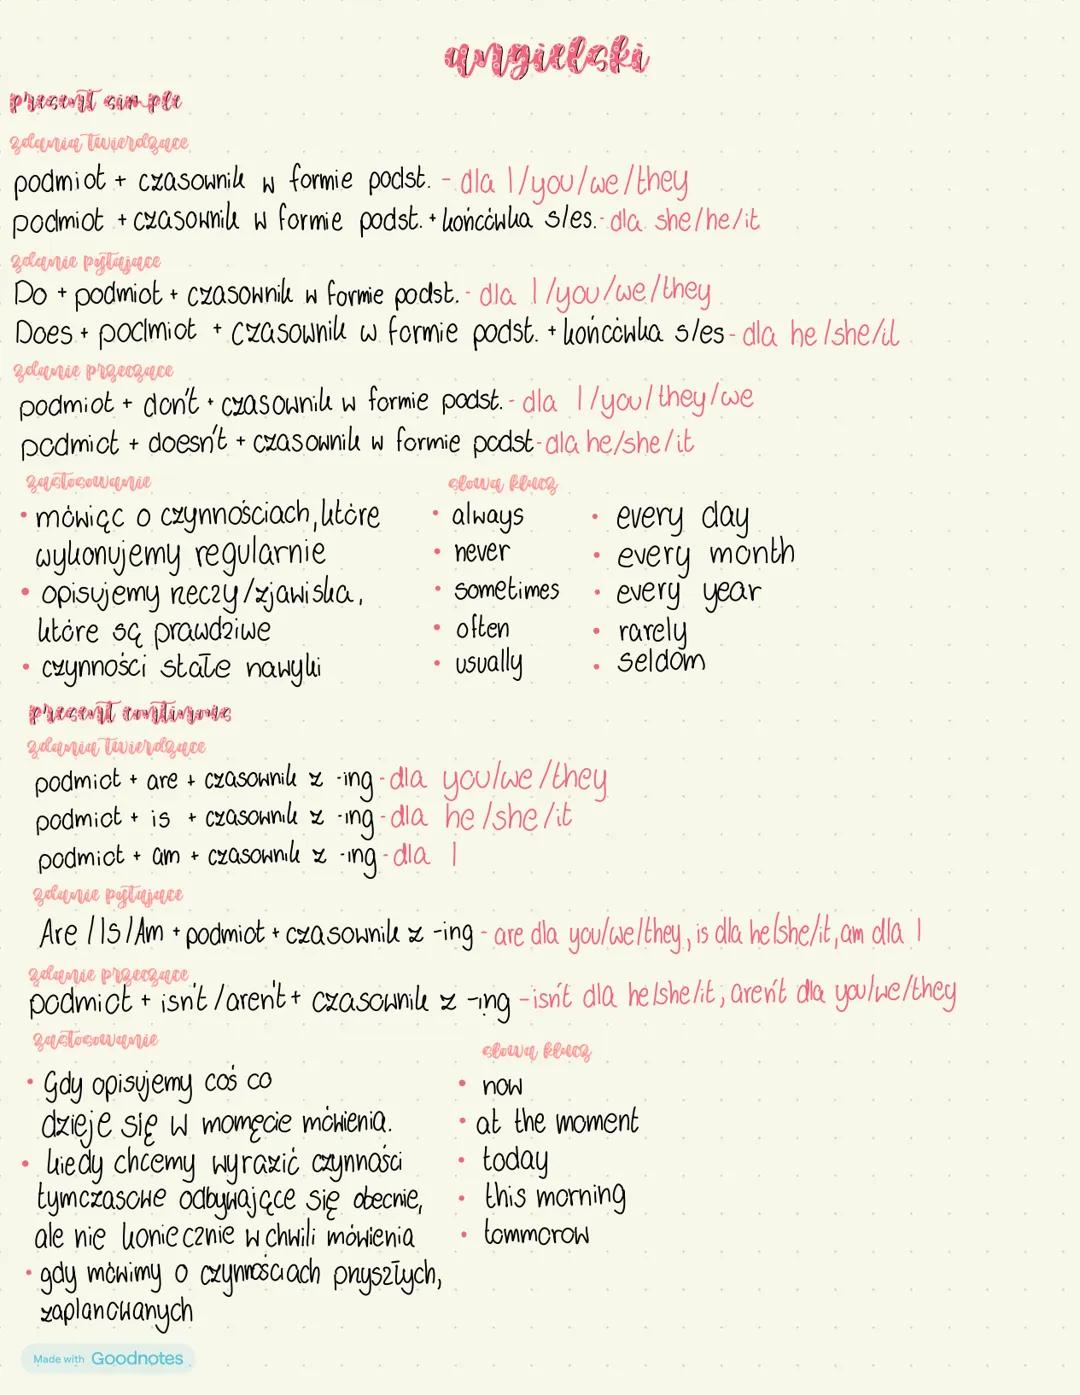 angielski
present simple
zdania twierdzące
podmiot + czasownik w formie podst. - dla I/you/we/they
podmiot + czasownik w formie podst. + końcówka s/es. - dla she/he/it
zdanie pytające
Do + podmiot + czasownik w formie podst. - dla I/you/we/they
Does + podmiot + czasownik w formie podst. + końcówka s/es - dla he/she/it
zdanie przeczące
podmiot + don't + czasownik w formie podst. - dla I/you/they/we
podmiot + doesn't + czasownik w formie podst - dla he/she/it
zastosowanie
• mówiąc o czynnościach, które
wykonujemy regularnie
• opisujemy rzeczy/zjawiska,
które są prawdziwe
• czynności stałe nawyki
słowa klucz
• always
• never
• sometimes
• often
• usually
• every day
• every month
• every year
• rarely
• seldom
present continous
zdania twierdzące
podmiot + are + czasownik z -ing - dla you/we/they
podmiot + is + czasownik z -ing - dla he/she/it
podmiot + am + czasownik z -ing - dla I
zdanie pytające
Are/Is/Am + podmiot + czasownik z -ing - are dla you/we/they, is dla he/she/it, am dla I
zdanie przeczące
podmiot + isn't/aren't + czasownik z -ing - isn't dla he/she/it, aren't dla you/we/they
zastosowanie
• Gdy opisujemy coś co
dzieje się w momęcie mówienia.
• kiedy chcemy wyrazić czynności
tymczasowe odbywające się obecnie,
ale nie koniecznie w chwili mówienia
• gdy mówimy o czynnościach przyszłych,
zaplanowanych
słowa klucz
• now
• at the moment
• today
• this morning
• tommorow
Made with Goodnotes